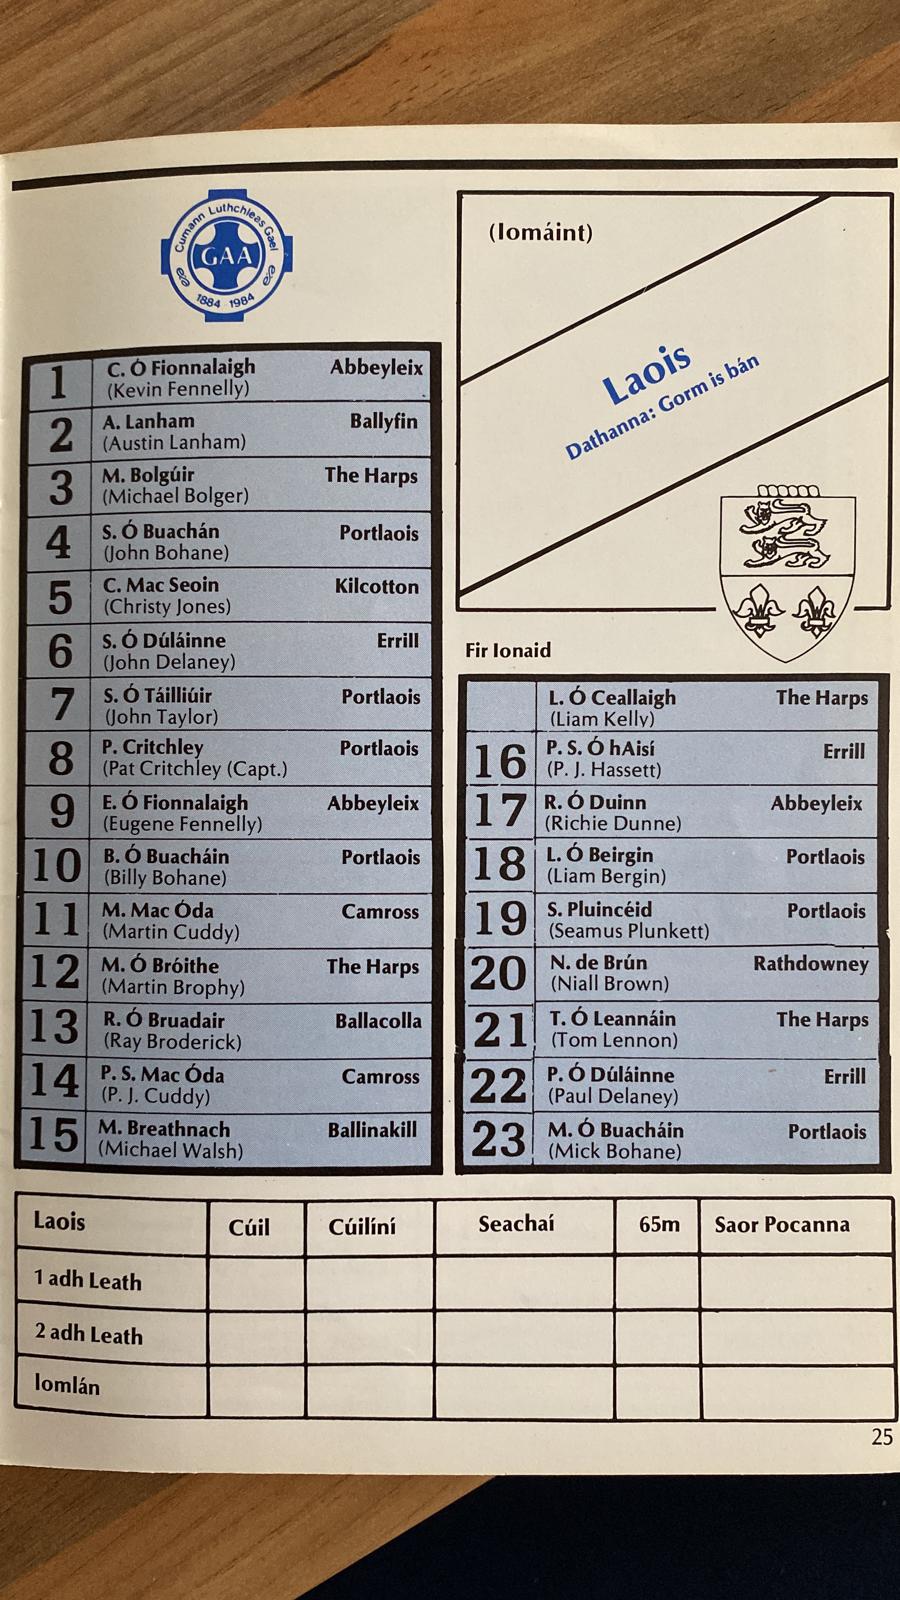 Cumann Luthchleas Gael
GAA
1884 1984
(Iomáint)
Laois
Dathanna: Gorm is bán
1 C. Ó Fionnalaigh Abbeyleix
(Kevin Fennelly)
2 A. Lanham Ballyfin
(Austin Lanham)
3 M. Bolgúir The Harps
(Michael Bolger)
4 S. Ó Buachán Portlaois
(John Bohane)
5 C. Mac Seoin Kilcotton
(Christy Jones)
6 S. Ó Dúláinne Errill
(John Delaney)
7 S. Ó Táilliúir Portlaois
(John Taylor)
8 P. Critchley Portlaois
(Pat Critchley (Capt.)
9 E. Ó Fionnalaigh Abbeyleix
(Eugene Fennelly)
10 B. Ó Buacháin Portlaois
(Billy Bohane)
11 M. Mac Óda Camross
(Martin Cuddy)
12 M. Ó Bróithe The Harps
(Martin Brophy)
13 R. Ó Bruadair Ballacolla
(Ray Broderick)
14 P. S. Mac Óda Camross
(P. J. Cuddy)
15 M. Breathnach Ballinakill
(Michael Walsh)
Fir Ionaid
L. Ó Ceallaigh The Harps
(Liam Kelly)
16 P. S. Ó hAisí Errill
(P. J. Hassett)
17 R. Ó Duinn Abbeyleix
(Richie Dunne)
18 L. Ó Beirgin Portlaois
(Liam Bergin)
19 S. Pluincéid Portlaois
(Seamus Plunkett)
20 N. de Brún Rathdowney
(Niall Brown)
21 T. Ó Leannáin The Harps
(Tom Lennon)
22 P. Ó Dúláinne Errill
(Paul Delaney)
23 M. Ó Buacháin Portlaois
(Mick Bohane)
Laois Cúil Cúilíní Seachaí 65m Saor Pocanna
1 adh Leath
2 adh Leath
Iomlán
25